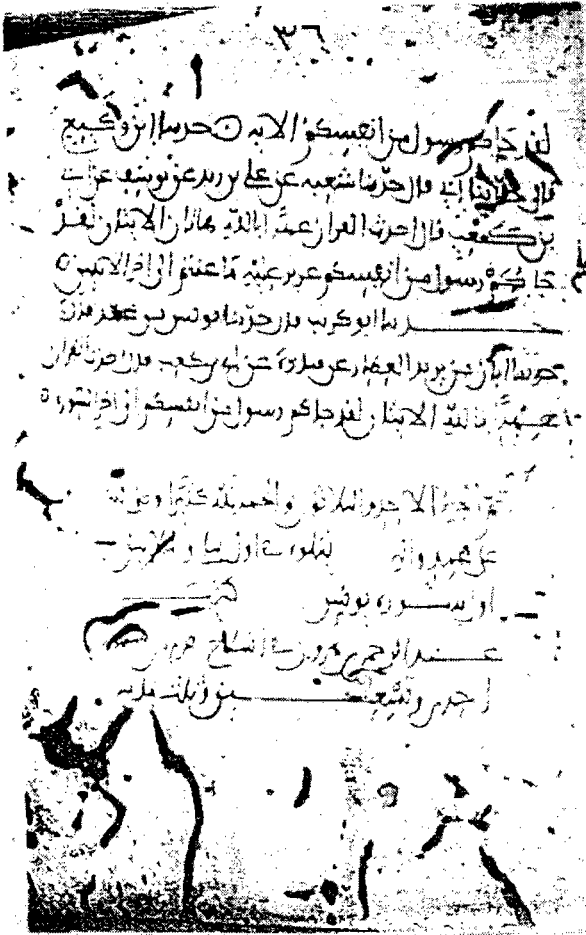 ٣٦
لقد جاكم رسول من انفسكم الاية ه حدثنا ابن وكيع
قال حدثنا ابي قال حدثنا شعبه عن علي بن زيد عن يوسف عن ابي
بن كعب قال احدث القران عهدا بالله هاتان الايتان لقد
جاكم رسول من انفسكم عزيز عليه ما عنتم الى اخر الايتين ه
حدثنا ابو كريب قال حدثنا يونس بن محمد قال
حدثنا ابان بن يزيد العطار عن قتادة عن ابي بن كعب قال احدث القران
عهدا بالله الايتان لقد جاكم رسول من انفسكم الى اخر السورة ه
تم الجزء الاحد والثلاثون والحمد لله كثيرا وصلى الله
على محمد واله يتلوه في اول
اول سورة يونس
عبد الرحمن
احدى وتسعين وثلث مايه